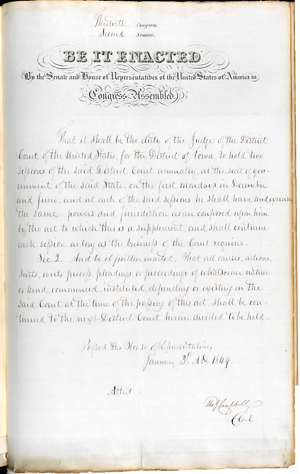 Thirtieth Congress
Second Session
BE IT ENACTED
By the Senate and House of Representatives of the United States of America in
Congress Assembled,
That it shall be the duty of the Judge of the District
Court of the United States for the District of Iowa to hold two
sessions of the said District Court annually, at the seat of gov-
ernment of the said State, on the first mondays in December
and June, and at each of the said sessions he shall have and exercise
the same powers and jurisdiction as are conferred upon him
by the act to which this is a supplement, and shall continue
each session as long as the business of the Court requires.
Sec. 2. And be it further enacted, That all causes, actions
suits, writs, process, pleadings, or proceedings of whatsoever nature
or kind, commenced, instituted, depending or existing in the
said Court at the time of the passing of this act, shall be con-
tinued to the next District Court herein decided to be held.
Passed the House of Representatives,
January 3d AD. 1849
Attest
Tho J Campbell
Clerk